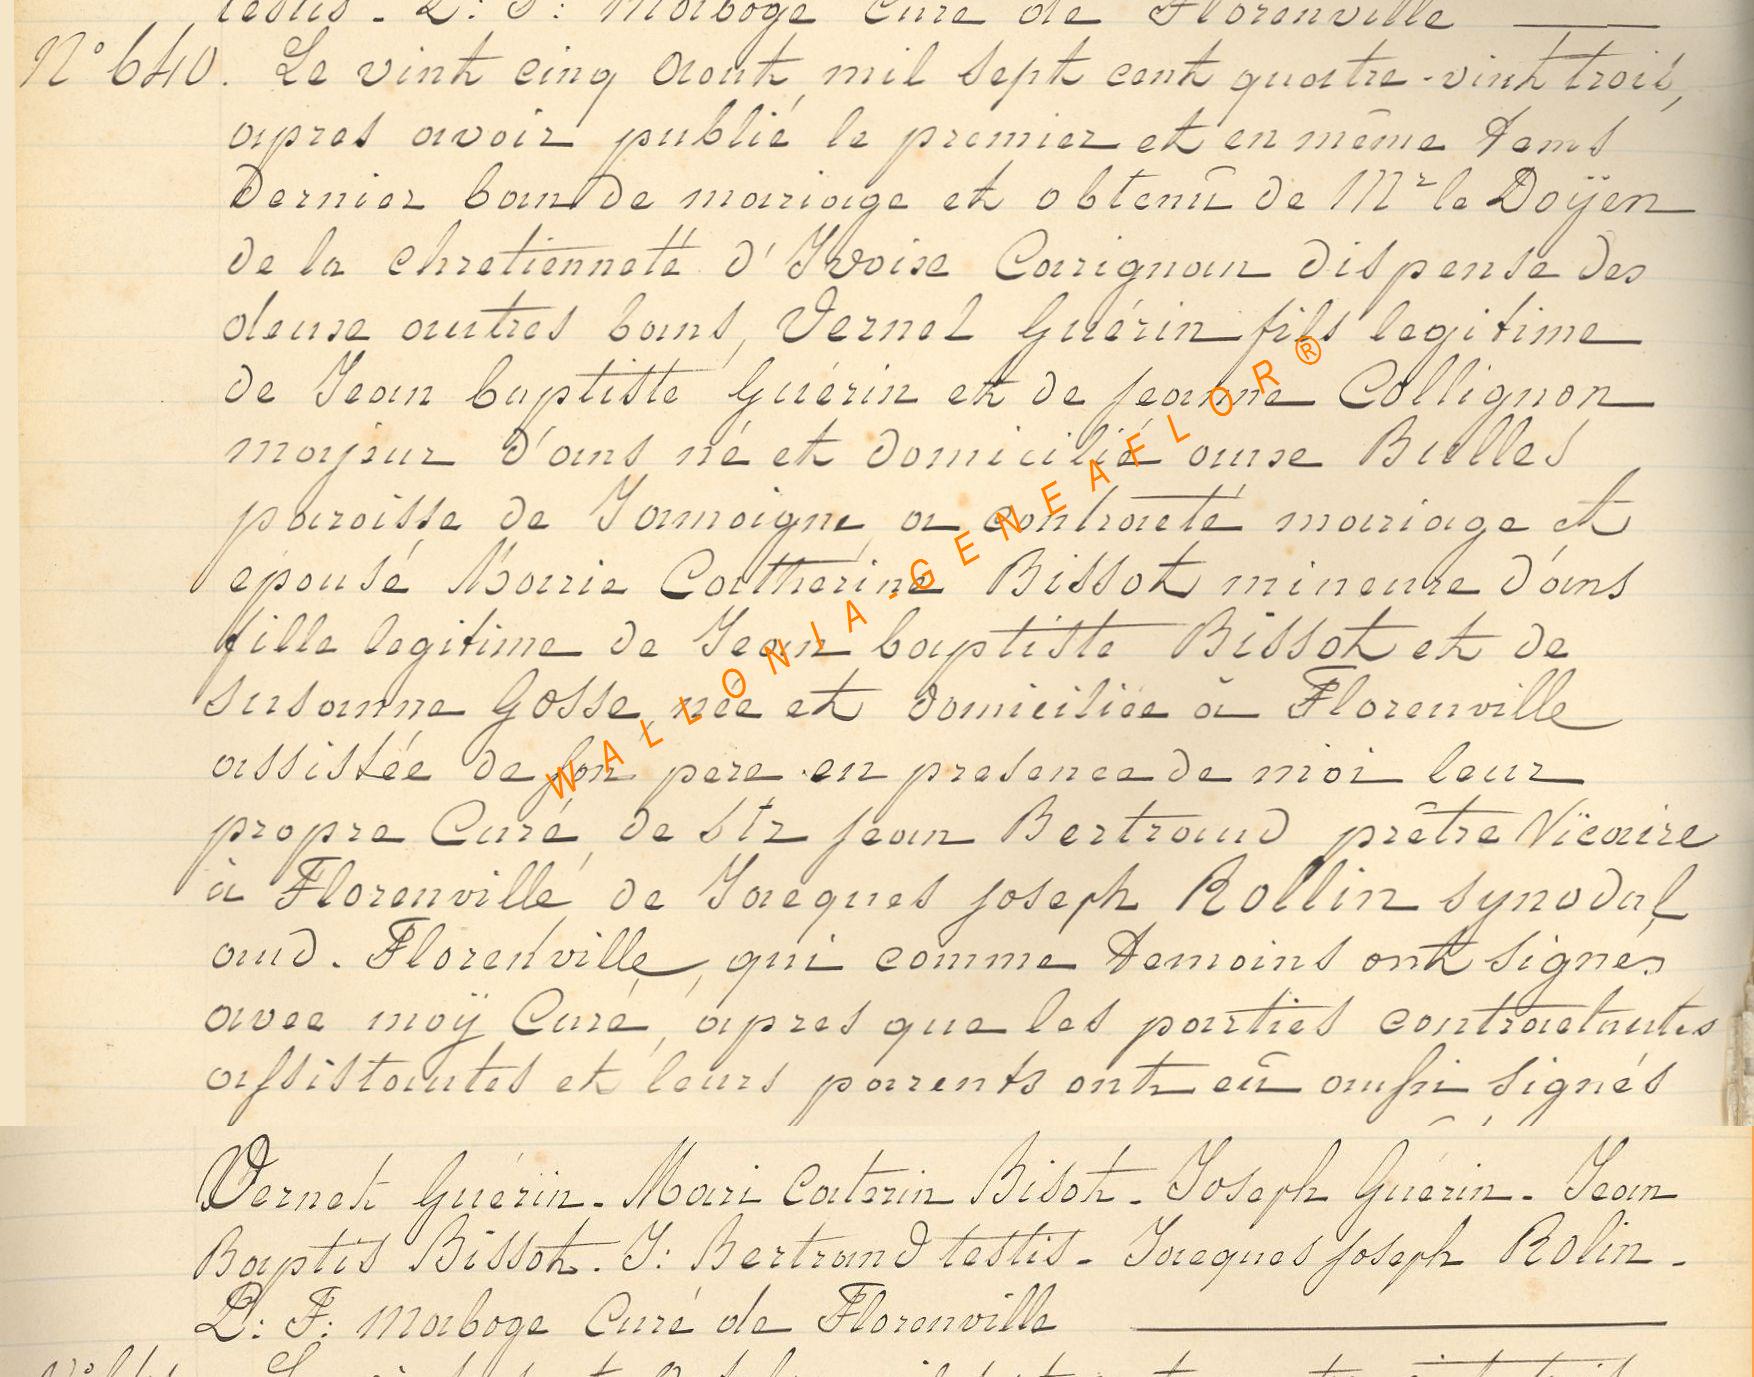 testis - L: F: Maboge Curé de Florenville
N° 640. Le vint cinq Aout mil sept cent quatre-vint trois,
apres avoir publié le premier et en même tems
Dernier ban De mariage et obtenû De Mr le Doÿen
De la chretienneté d'Ivoix Carignan dispense des
deuxe autres bans, Vernel Guérin fils legitime
de Jean baptiste Guérin et de jeanne Collignon
majeur d'ans né et domicilié auxe Bulles
paroisse de Jamoigne, a contracté mariage et
epousé Marie Catherine Bissot mineure d'ans
fille legitime de Jean baptiste Bissot et de
susanne Gosse née et domiciliée à Florenville
assistée de son pere en presence de moi leur
propre Curé, de Str jean Bertrand prêtre Vïcaire
à Florenville, de Jacques joseph Rollin synodal
aud. Florenville, qui comme temoins ont signés
avec moÿ Curé, apres que les parties contractantes
assistantes et leurs parents ont eû aussi signés
Vernet Guérin - Mari Caterin Bisot - Joseph Guérin - Jean
Baptis Bissot. J: Bertrand testis - Jacques joseph Rolin -
L: F: Maboge Curé de Florenville
WALLONIA-GENEAFLOR®